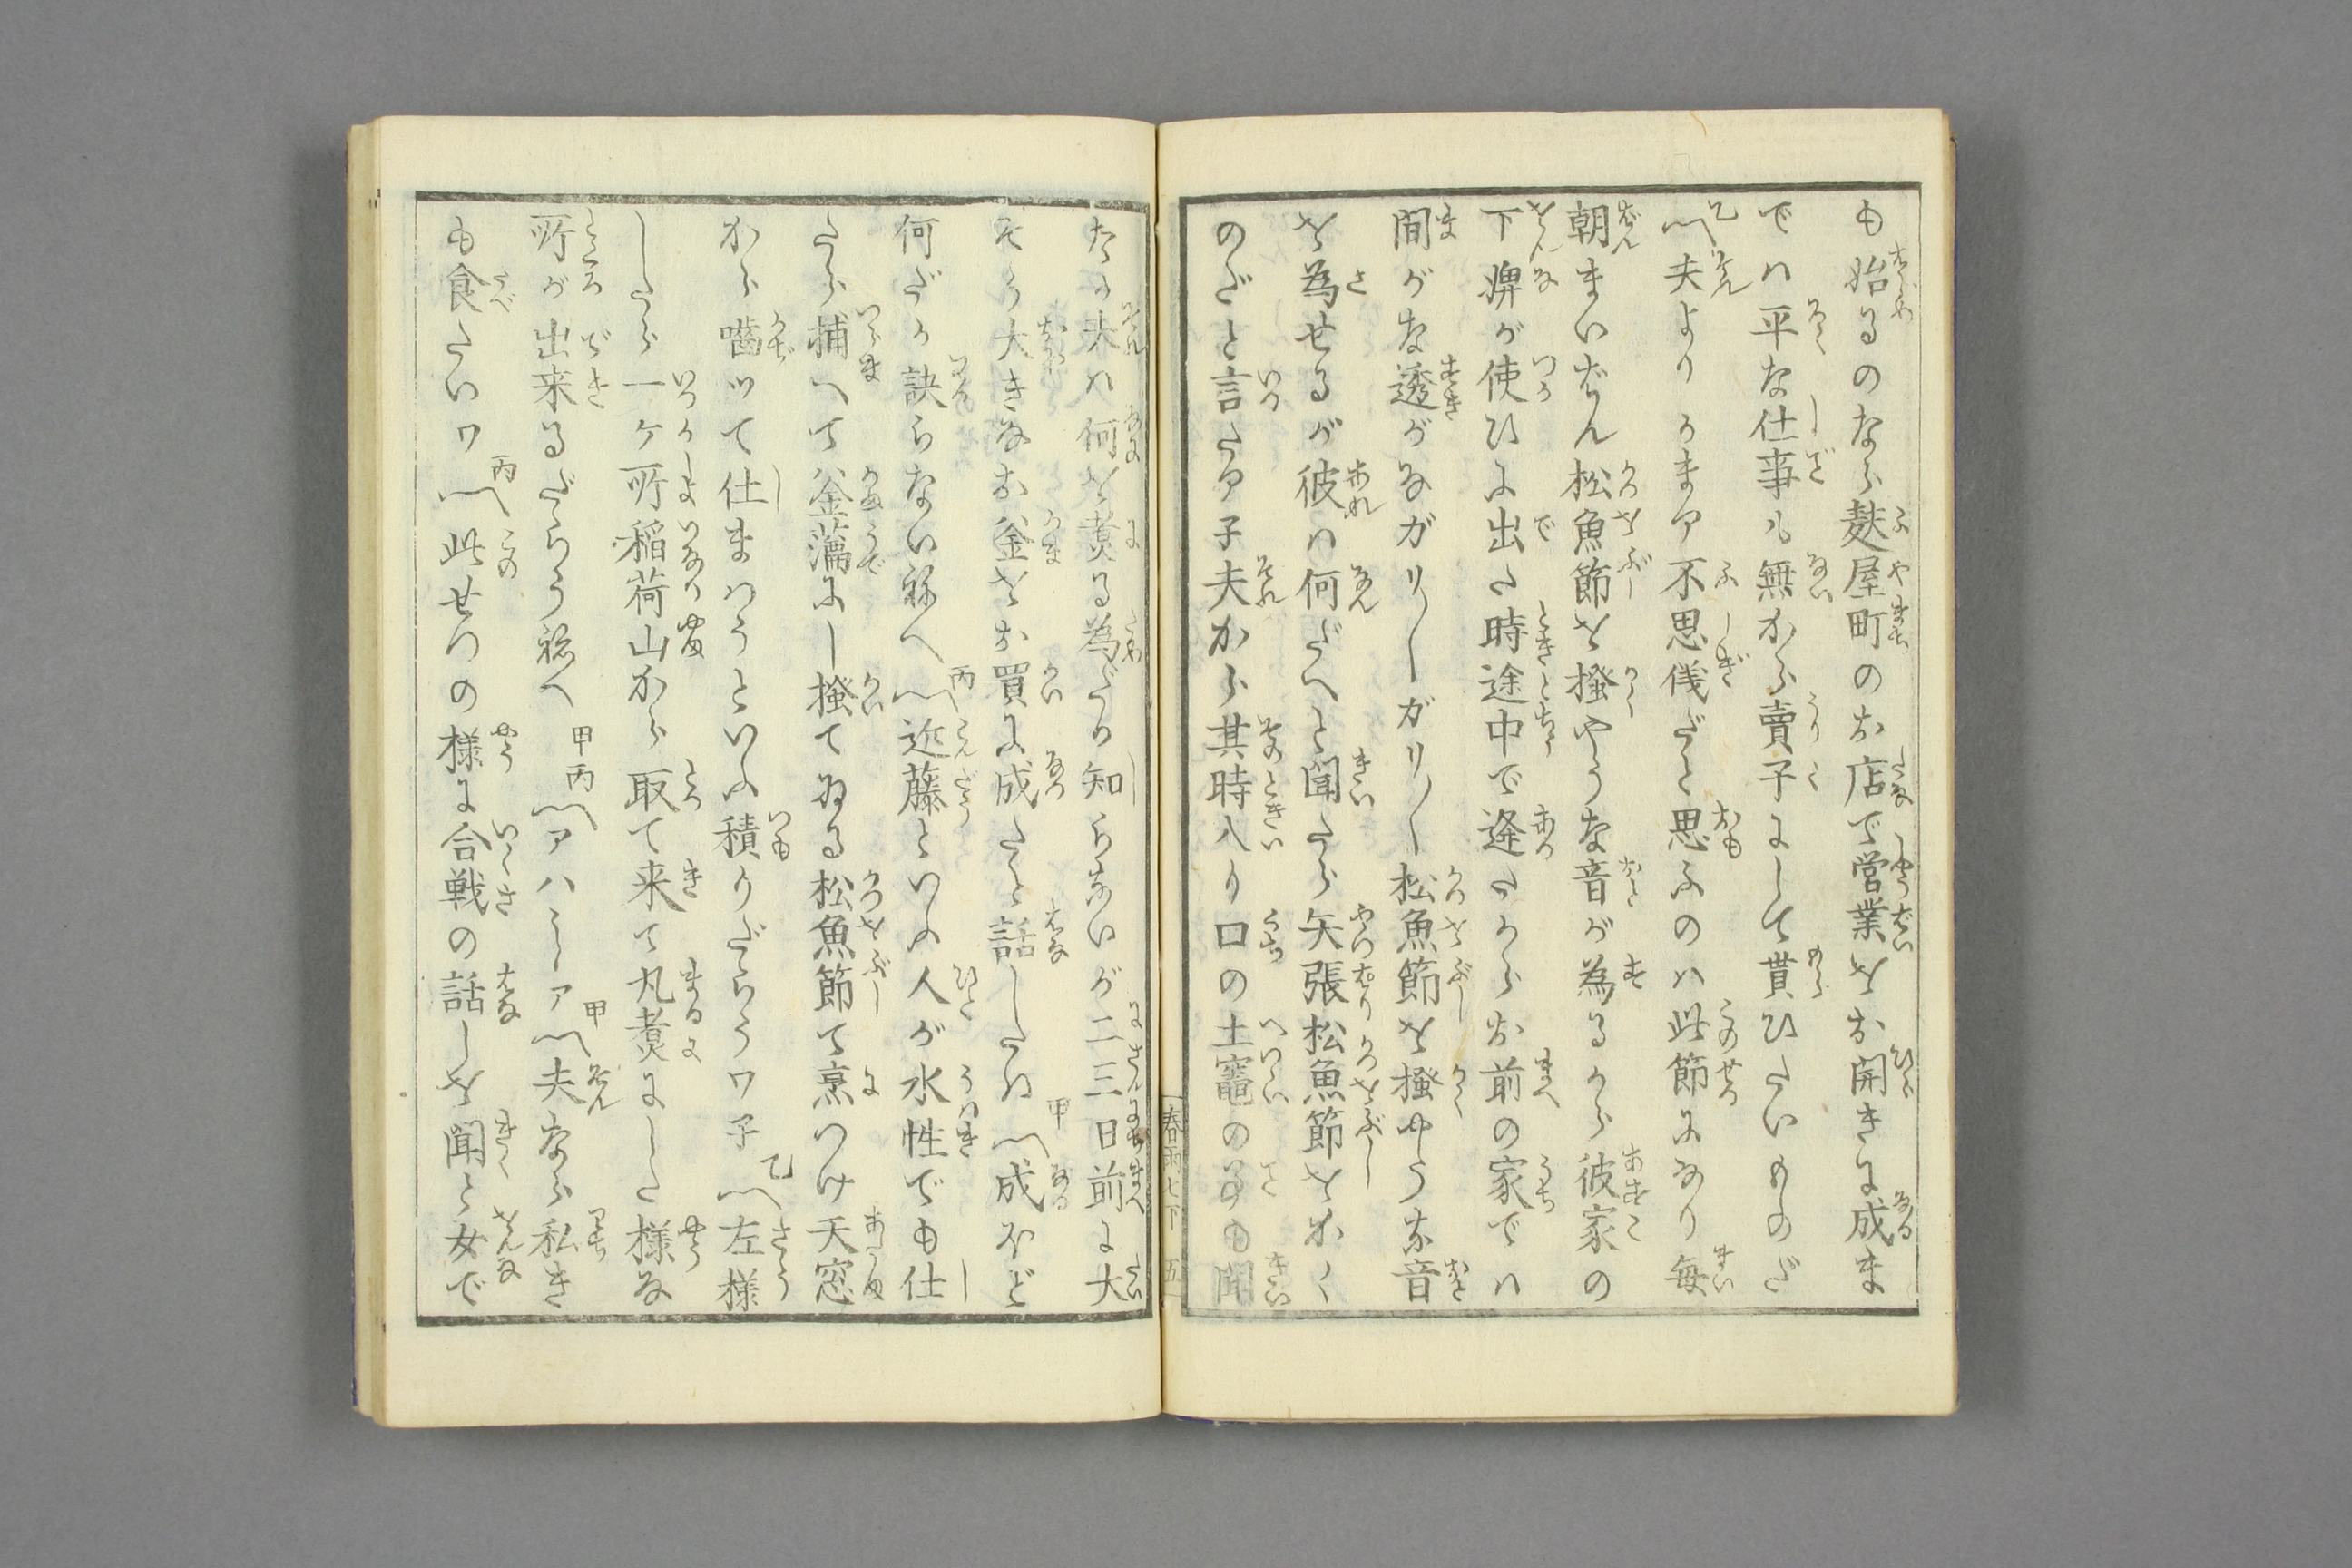 も始るのなら麩屋町のお店で営業をお開きに成ま
では平な仕事も無から賣子にして貰ひたいものだ
乙〽夫よりかまア不思儀だと思ふのは此節になり毎
朝まいばん松魚節を掻やうな音が為るから彼家の
下婢が使ひに出た時途中で逢たからお前の家では
間がな透がなガリ〳〵ガリ〳〵松魚節を掻やうな音
を為せるが彼は何だへと聞たら矢張松魚節をかく
のだと言たア子夫から其時入り口の土竈の も聞
たか夫は何を煮る為だか知らないが二三日前に大
そう大きなお釜をお買に成たと話したは甲〽成ほど
何だか訣らない祢へ丙〽近藤といふ人が水性でも仕
たら捕へて釜蕩にし掻てゐる松魚節で烹つけ天窓
から噛ッて仕まはうといふ積りだらうワ子乙〽左様
したら一ケ所稲荷山から取て来て丸煮にした様な
所が出来るだらう祢へ甲丙〽アハヽヽア甲〽夫なら私き
も食たいワ丙〽此せつの様に合戦の話しを聞と女で
春雨七下 五